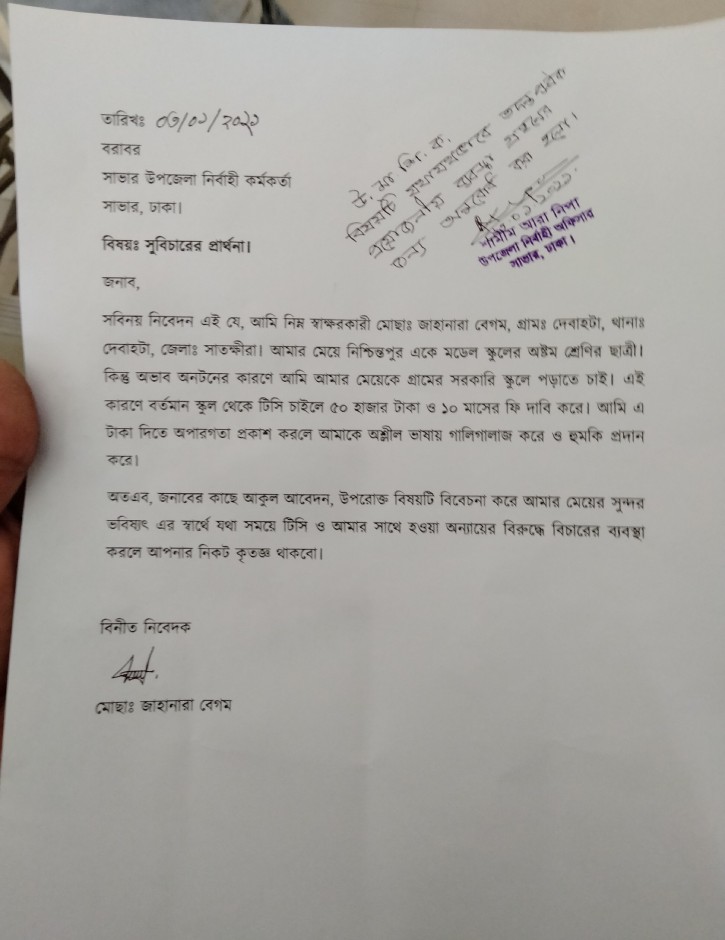 তারিখঃ ০৩/০১/২০২১
বরাবর
সাভার উপজেলা নির্বাহী কর্মকর্তা
সাভার, ঢাকা।
বিষয়ঃ সুবিচারের প্রার্থনা।
জনাব,
উ. মা. শি. ক.
বিষয়টি যথাযথভাবে তদন্ত পূর্বক
প্রয়োজনীয় ব্যবস্থা গ্রহণের
জন্য অনুরোধ করা হলো।
শামীম আরা নিপা
উপজেলা নির্বাহী অফিসার
সাভার, ঢাকা।
সবিনয় নিবেদন এই যে, আমি নিম্ন স্বাক্ষরকারী মোছাঃ জাহানারা বেগম, গ্রামঃ দেবহাটা, থানাঃ
দেবহাটা, জেলাঃ সাতক্ষীরা। আমার মেয়ে নিশ্চিন্তপুর একে মডেল স্কুলের অষ্টম শ্রেণির ছাত্রী।
কিন্তু অভাব অনটনের কারণে আমি আমার মেয়েকে গ্রামের সরকারি স্কুলে পড়াতে চাই। এই
কারণে বর্তমান স্কুল থেকে টিসি চাইলে ৫০ হাজার টাকা ও ১০ মাসের ফি দাবি করে। আমি এ
টাকা দিতে অপারগতা প্রকাশ করলে আমাকে অশ্লীল ভাষায় গালিগালাজ করে ও হুমকি প্রদান
করে।
অতএব, জনাবের কাছে আকুল আবেদন, উপরোক্ত বিষয়টি বিবেচনা করে আমার মেয়ের সুন্দর
ভবিষ্যৎ এর স্বার্থে যথা সময়ে টিসি ও আমার সাথে হওয়া অন্যায়ের বিরুদ্ধে বিচারের ব্যবস্থা
করলে আপনার নিকট কৃতজ্ঞ থাকবো।
বিনীত নিবেদক
মোছাঃ জাহানারা বেগম